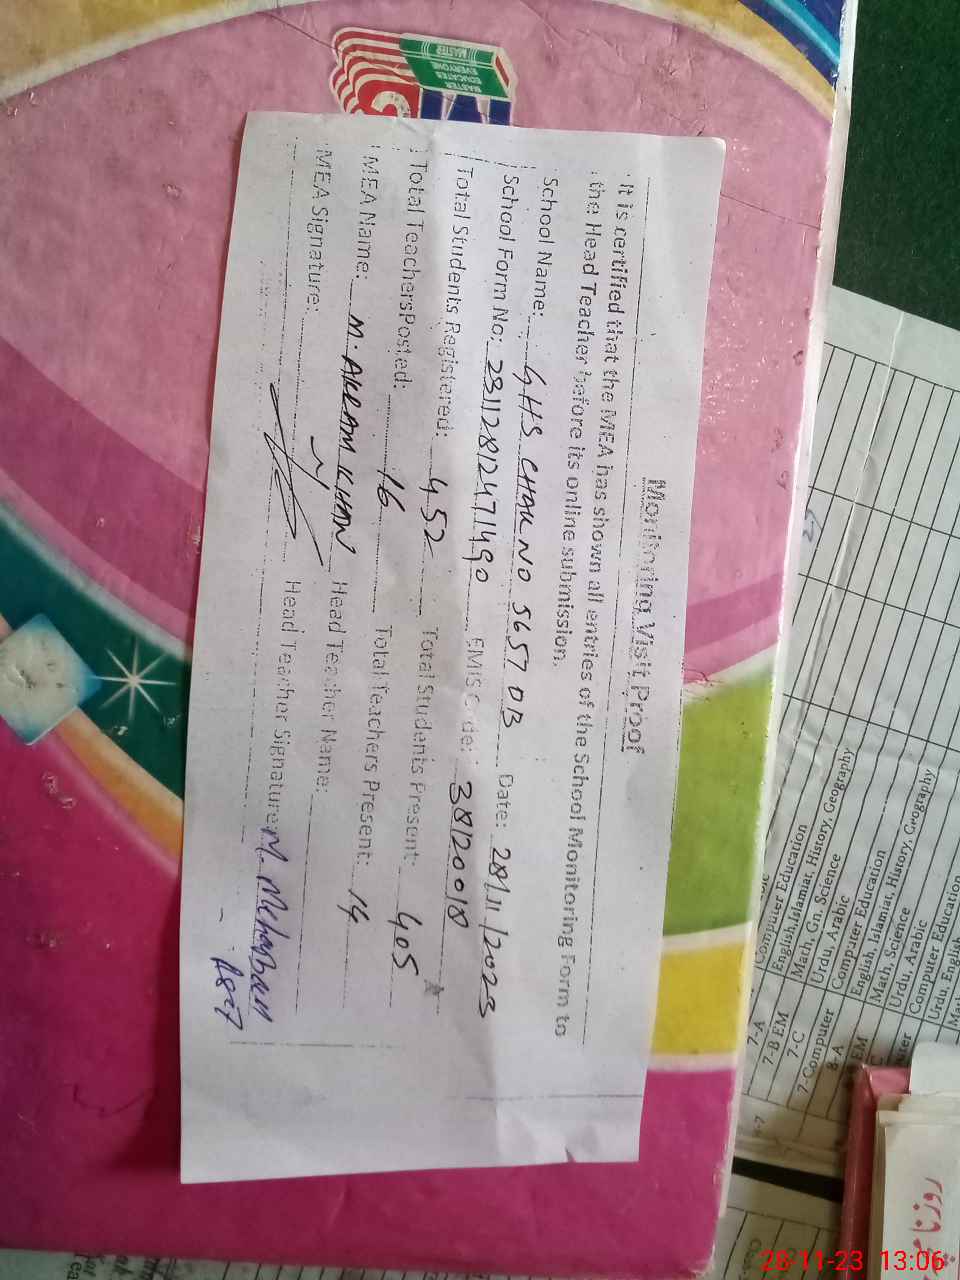 Monitoring Visit Proof
It is certified that the MEA has shown all entries of the School Monitoring Form to
the Head Teacher before its online submission.
School Name: G.H.S. CHAK NO 5657 OB Date: 28/11/2023
School Form No: 23112812471490 EMIS Code: 38120018
Total Students Registered: 452 Total Students Present: 405
Total Teachers Posted: 16 Total Teachers Present: 14
MEA Name: M. AKRAM KHAN Head Teacher Name:
MEA Signature: Head Teacher Signature: M.
MASTER
EDUCATER
EVERYONE
MASTER
7-A Computer Education
7-B EM English, Islamiat, History, Geography
7-C Math, Gn. Science
7-Computer Urdu, Arabic
8-A Computer Education
EM English, Islamiat, History, Geography
C Math, Science
Urdu, Arabic
Computer Education
Urdu, English
28-11-23 13:06